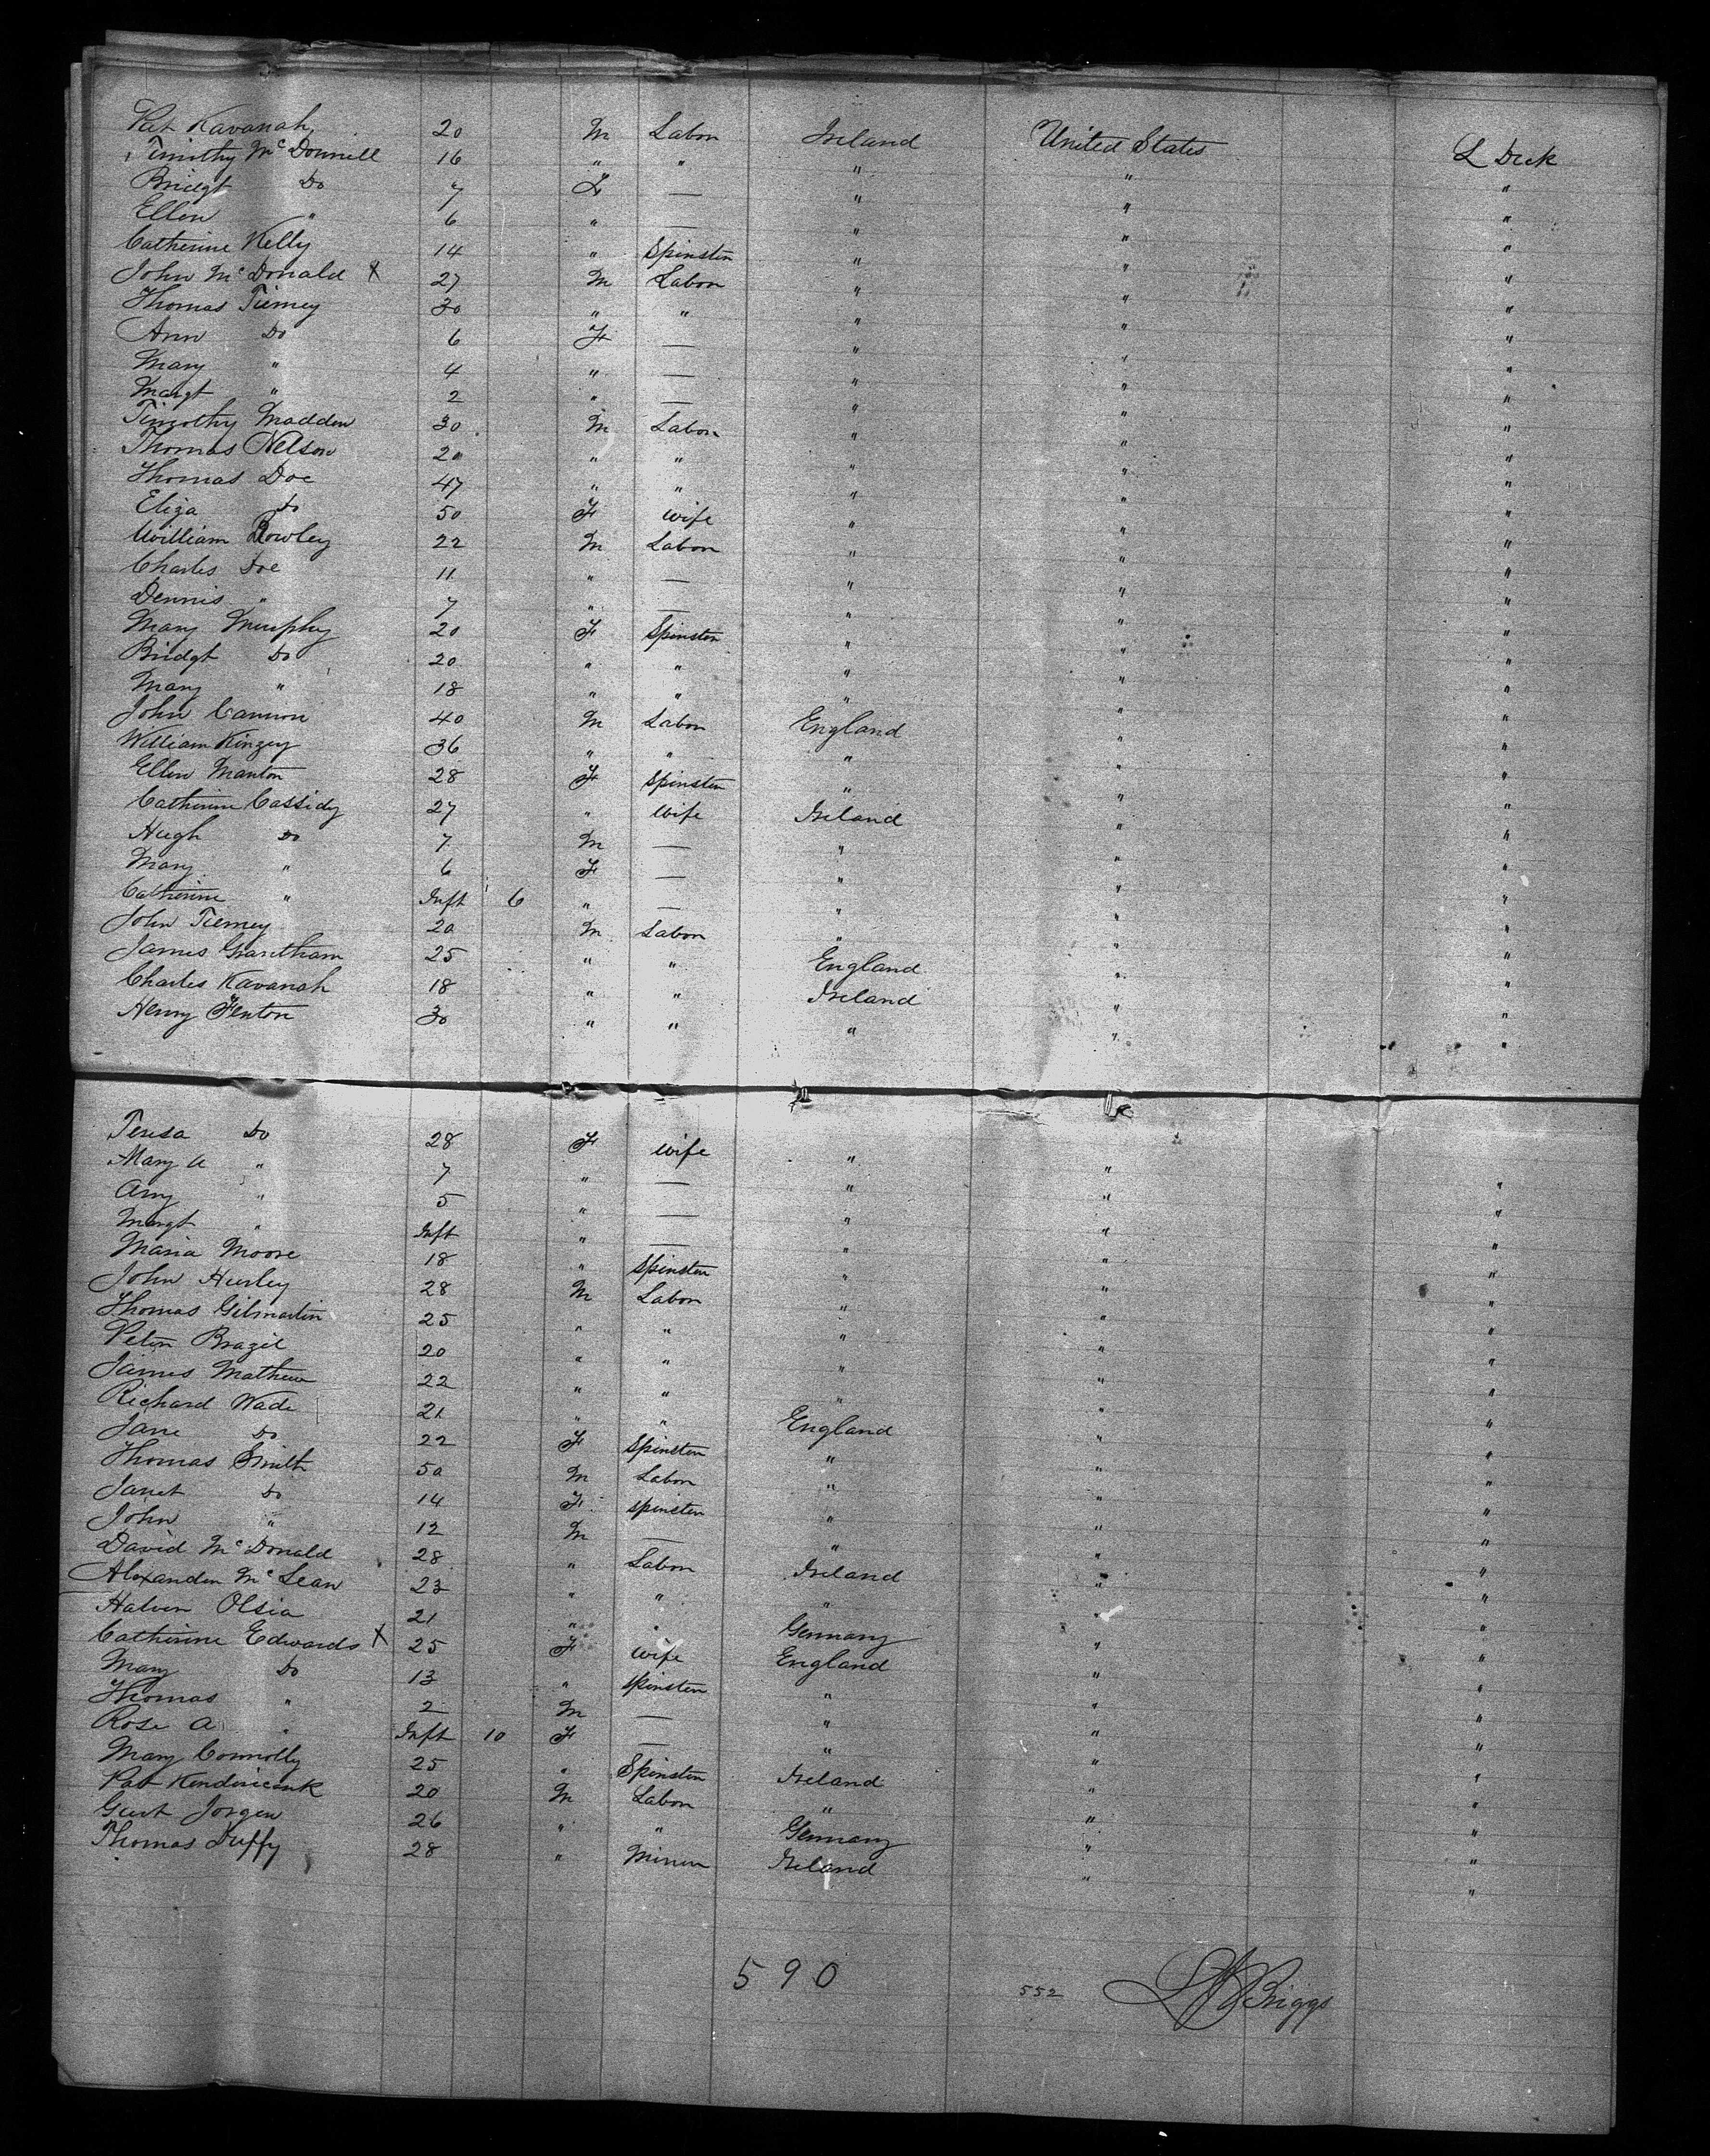 Pat Kavanah 20 M Labor Ireland United States L Deck
Timothy McDonnell 16 " " " " "
Bridgt Do 7 F — " " "
Ellen " 6 " — " " "
Catherine Kelly 14 " Spinster " " "
John McDonald X 27 M Labor " " "
Thomas Tierney 30 " " " " "
Ann Do 6 F — " " "
Mary " 4 " — " " "
Margt " 2 " — " " "
Timothy Madden 30 M Labor " " "
Thomas Nelson 20 " " " " "
Thomas Doe 47 " " " " "
Eliza Do 50 F Wife " " "
William Rowley 22 M Labor " " "
Charles Doe 11 " — " " "
Dennis " 7 " — " " "
Mary Murphy 20 F Spinster " " "
Bridgt Do 20 " " " " "
Mary " 18 " " " " "
John Cannon 40 M Labor England " "
William Kingey 36 " " " " "
Ellen Manton 28 F Spinster " " "
Catherine Cassidy 27 " Wife Ireland " "
Hugh Do 7 M — " " "
Mary " 6 F — " " "
Catherine " Inft 6 " — " " "
John Tierney 20 M Labor " " "
James Grantham 25 " " England " "
Charles Kavanah 18 " " Ireland " "
Henry Fenton 30 " " " " "
Teresa Do 28 F Wife " " "
Mary A " 7 " — " " "
Amy " 5 " — " " "
Margt " Inft " — " " "
Maria Moore 18 " Spinster " " "
John Hurley 28 M Labor " " "
Thomas Gilmartin 25 " " " " "
Peter Brazil 20 " " " " "
James Mathew 22 " " " " "
Richard Wade 21 " " England " "
Jane Do 22 F Spinster " " "
Thomas Smith 50 M Labor " " "
Janet Do 14 F Spinster " " "
John " 12 M — " " "
David McDonald 28 " Labor Ireland " "
Alexander McLean 23 " " " " "
Halven Olsia 21 " " Germany " "
Catherine Edwards X 25 F Wife England " "
Mary Do 13 " Spinster " " "
Thomas " 2 M — " " "
Rose A " Inft 10 F — " " "
Mary Connolly 25 " Spinster Ireland " "
Pat 20 M Labor " " "
Gust Jorgen 26 " " Germany " "
Thomas Duffy 28 " Miner Ireland " "
590 552 Briggs